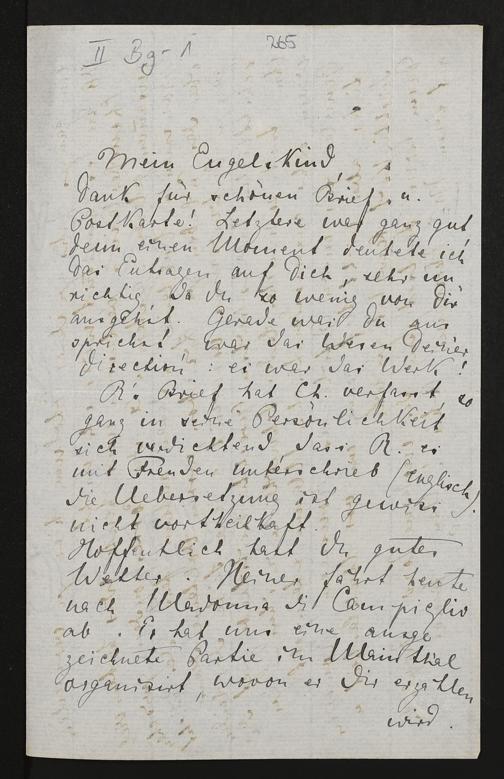 II Bg-1
265
Mein Engelskind
Dank für schönen Brief u.
Postkarte! Letztere war ganz gut
denn einen Moment deutete ich
das Entsagen auf Dich, sehr un
richtig da du so wenig von Dir
ausgehst. Gerade was du aus
sprichst war das Wesen Deiner
Direction: es war das Werk!
R's Brief hat Ch. verfasst, so
ganz in seine Persönlichkeit
sich verdichtend dass R. es
mit Freuden unterschrieb (englisch).
die Uebersetzung ist gewiss
nicht vortheilhaft.
Hoffentlich hast du gutes
Wetter. Heiner fährt heute
nach Madonna di Campiglio
ab. Er hat uns eine ausge
zeichnete Partie im Mainthal
organisirt, wovon er Dir erzählen
wird.